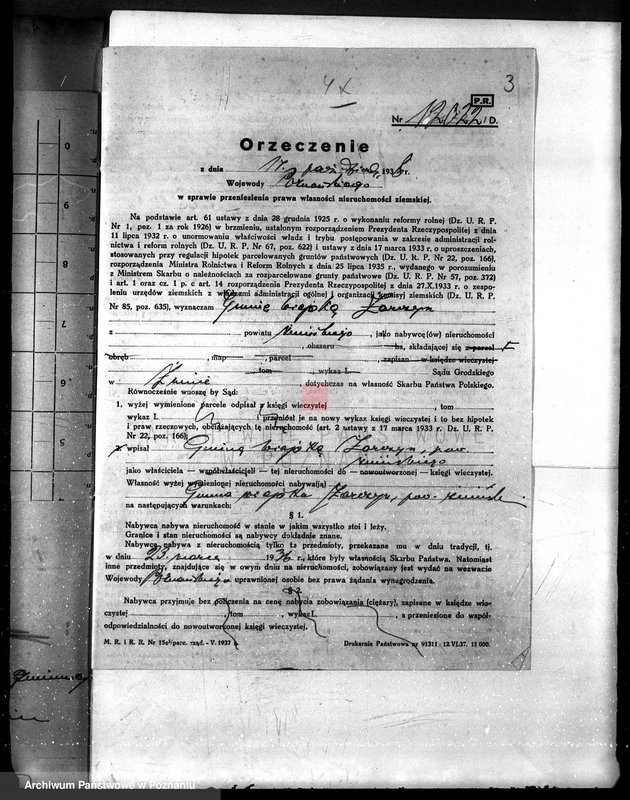 4 x
3
P.R.
Nr 12022/D.
Orzeczenie
z dnia 17 października 1938 r.
Wojewody Poznańskiego
w sprawie przeniesienia prawa własności nieruchomości ziemskiej.
Na podstawie art. 61 ustawy z dnia 28 grudnia 1925 r. o wykonaniu reformy rolnej (Dz. U. R. P.
Nr 1, poz. 1 za rok 1926) w brzmieniu, ustalonym rozporządzeniem Prezydenta Rzeczypospolitej z dnia
11 lipca 1932 r. o unormowaniu właściwości władz i trybu postępowania w zakresie administracji rol-
nictwa i reform rolnych (Dz. U. R. P. Nr 67, poz. 622) i ustawy z dnia 17 marca 1933 r. o uproszczeniach,
stosowanych przy regulacji hipotek parcelowanych gruntów państwowych (Dz. U. R. P. Nr 22, poz. 166),
rozporządzenia Ministra Rolnictwa i Reform Rolnych z dnia 25 lipca 1935 r., wydanego w porozumieniu
z Ministrem Skarbu o należnościach za rozparcelowane grunty państwowe (Dz. U. R. P. Nr 57, poz. 372)
i art. 1 oraz cz. 1 p. c art. 14 rozporządzenia Prezydenta Rzeczypospolitej z dnia 27.X.1933 r. o zespo-
leniu urzędów ziemskich z władzami administracji ogólnej i organizacji komisyj ziemskich (Dz. U. R. P.
Nr 85, poz. 635), wyznaczam Gminę wiejską
z powiatu żnińskiego, jako nabywcę(ów) nieruchomości
, obszaru ha, składającej się z parcel
obręb , map , parcel , zapisan w księdze wieczystej
tom wykaz L. Sądu Grodzkiego
w Żninie, dotychczas na własność Skarbu Państwa Polskiego.
Równocześnie wnoszę by Sąd:
1. wyżej wymienione parcele odpisał z księgi wieczystej , tom
wykaz L. i przeniósł je na nowy wykaz księgi wieczystej i to bez hipotek
i praw rzeczowych, obciążających tę nieruchomość (art. 2 ustawy z 17 marca 1933 r. Dz. U. R. P.
Nr 22, poz. 166);
2. wpisał Gminę wiejską pow. żnińskiego
jako właściciela — współwłaścicieli — tej nieruchomości do — nowoutworzonej — księgi wieczystej.
Własność wyżej wymienionej nieruchomości nabywa(ją)
Gmina wiejska pow. żniński
na następujących warunkach:
§ 1.
Nabywca nabywa nieruchomość w stanie w jakim wszystko stoi i leży.
Granice i stan nieruchomości są nabywcy dokładnie znane.
Nabywca nabywa z nieruchomością tylko te przedmioty, przekazane mu w dniu tradycji, tj.
w dniu 23 marca 1936 r., które były własnością Skarbu Państwa. Natomiast
inne przedmioty, znajdujące się w owym dniu na nieruchomości, zobowiązany jest wydać na wezwanie
Wojewody Poznańskiego uprawnionej osobie bez prawa żądania wynagrodzenia.
§ 2.
Nabywca przyjmuje bez policzenia na cenę nabycia zobowiązania (ciężary), zapisane w księdze wie-
czystej , tom , wykaz L. , a przeniesione do współ-
odpowiedzialności do nowoutworzonej księgi wieczystej.
M. R. i R. R. Nr 15c/parc. rząd. - V. 1937 r.
Drukarnia Państwowa nr 91311. 12.VI.37. 11 000.
Archiwum Państwowe w Poznaniu